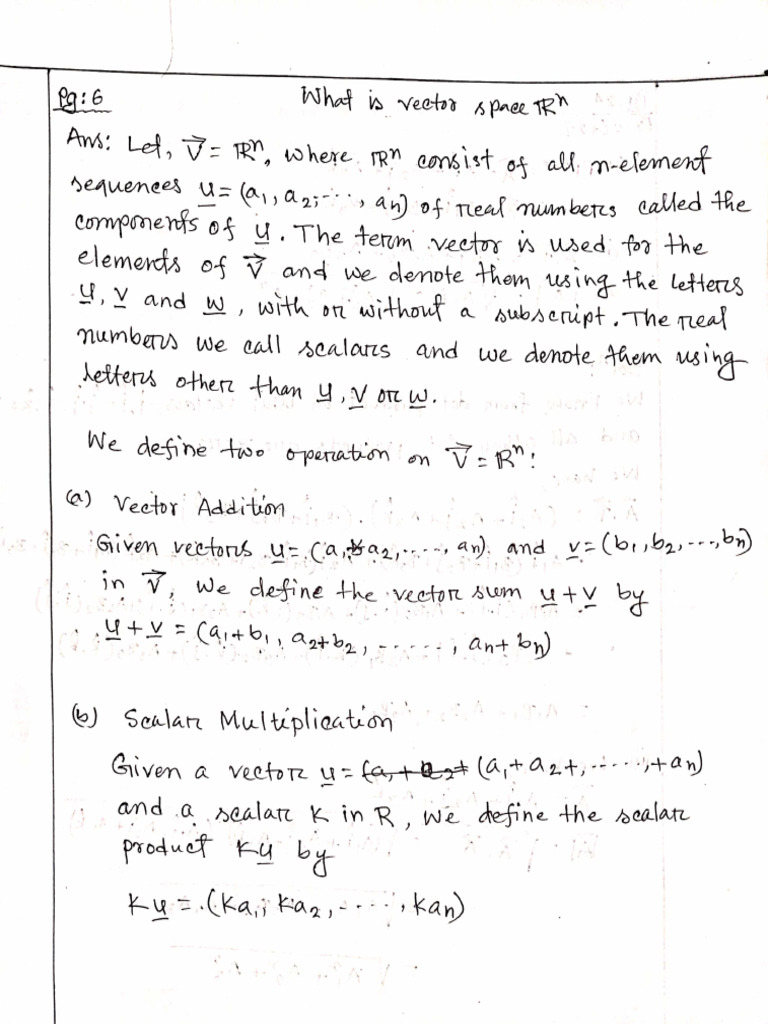 Pg: 6 What is vector space ℝⁿ
Ans: Let, V⃗ = ℝⁿ, where ℝⁿ consist of all n-element
sequences u̲ = (a₁, a₂, ...., aₙ) of real numbers called the
components of u̲. The term vector is used for the
elements of V⃗ and we denote them using the letters
u̲, v̲ and w̲, with or without a subscript. The real
numbers we call scalars and we denote them using
letters other than u̲, v̲ or w̲.
We define two operation on V⃗ = ℝⁿ:
(a) Vector Addition
Given vectors u̲ = (a₁, a₂, ....., aₙ) and v̲ = (b₁, b₂, ..., bₙ)
in V⃗, we define the vector sum u̲ + v̲ by
u̲ + v̲ = (a₁+b₁, a₂+b₂, ......, aₙ+bₙ)
(b) Scalar Multiplication
Given a vector u̲ = (a₁+a₂+, ......, +aₙ)
and a scalar K in R, we define the scalar
product Ku̲ by
Ku̲ = (Ka₁, Ka₂, ....., kaₙ)